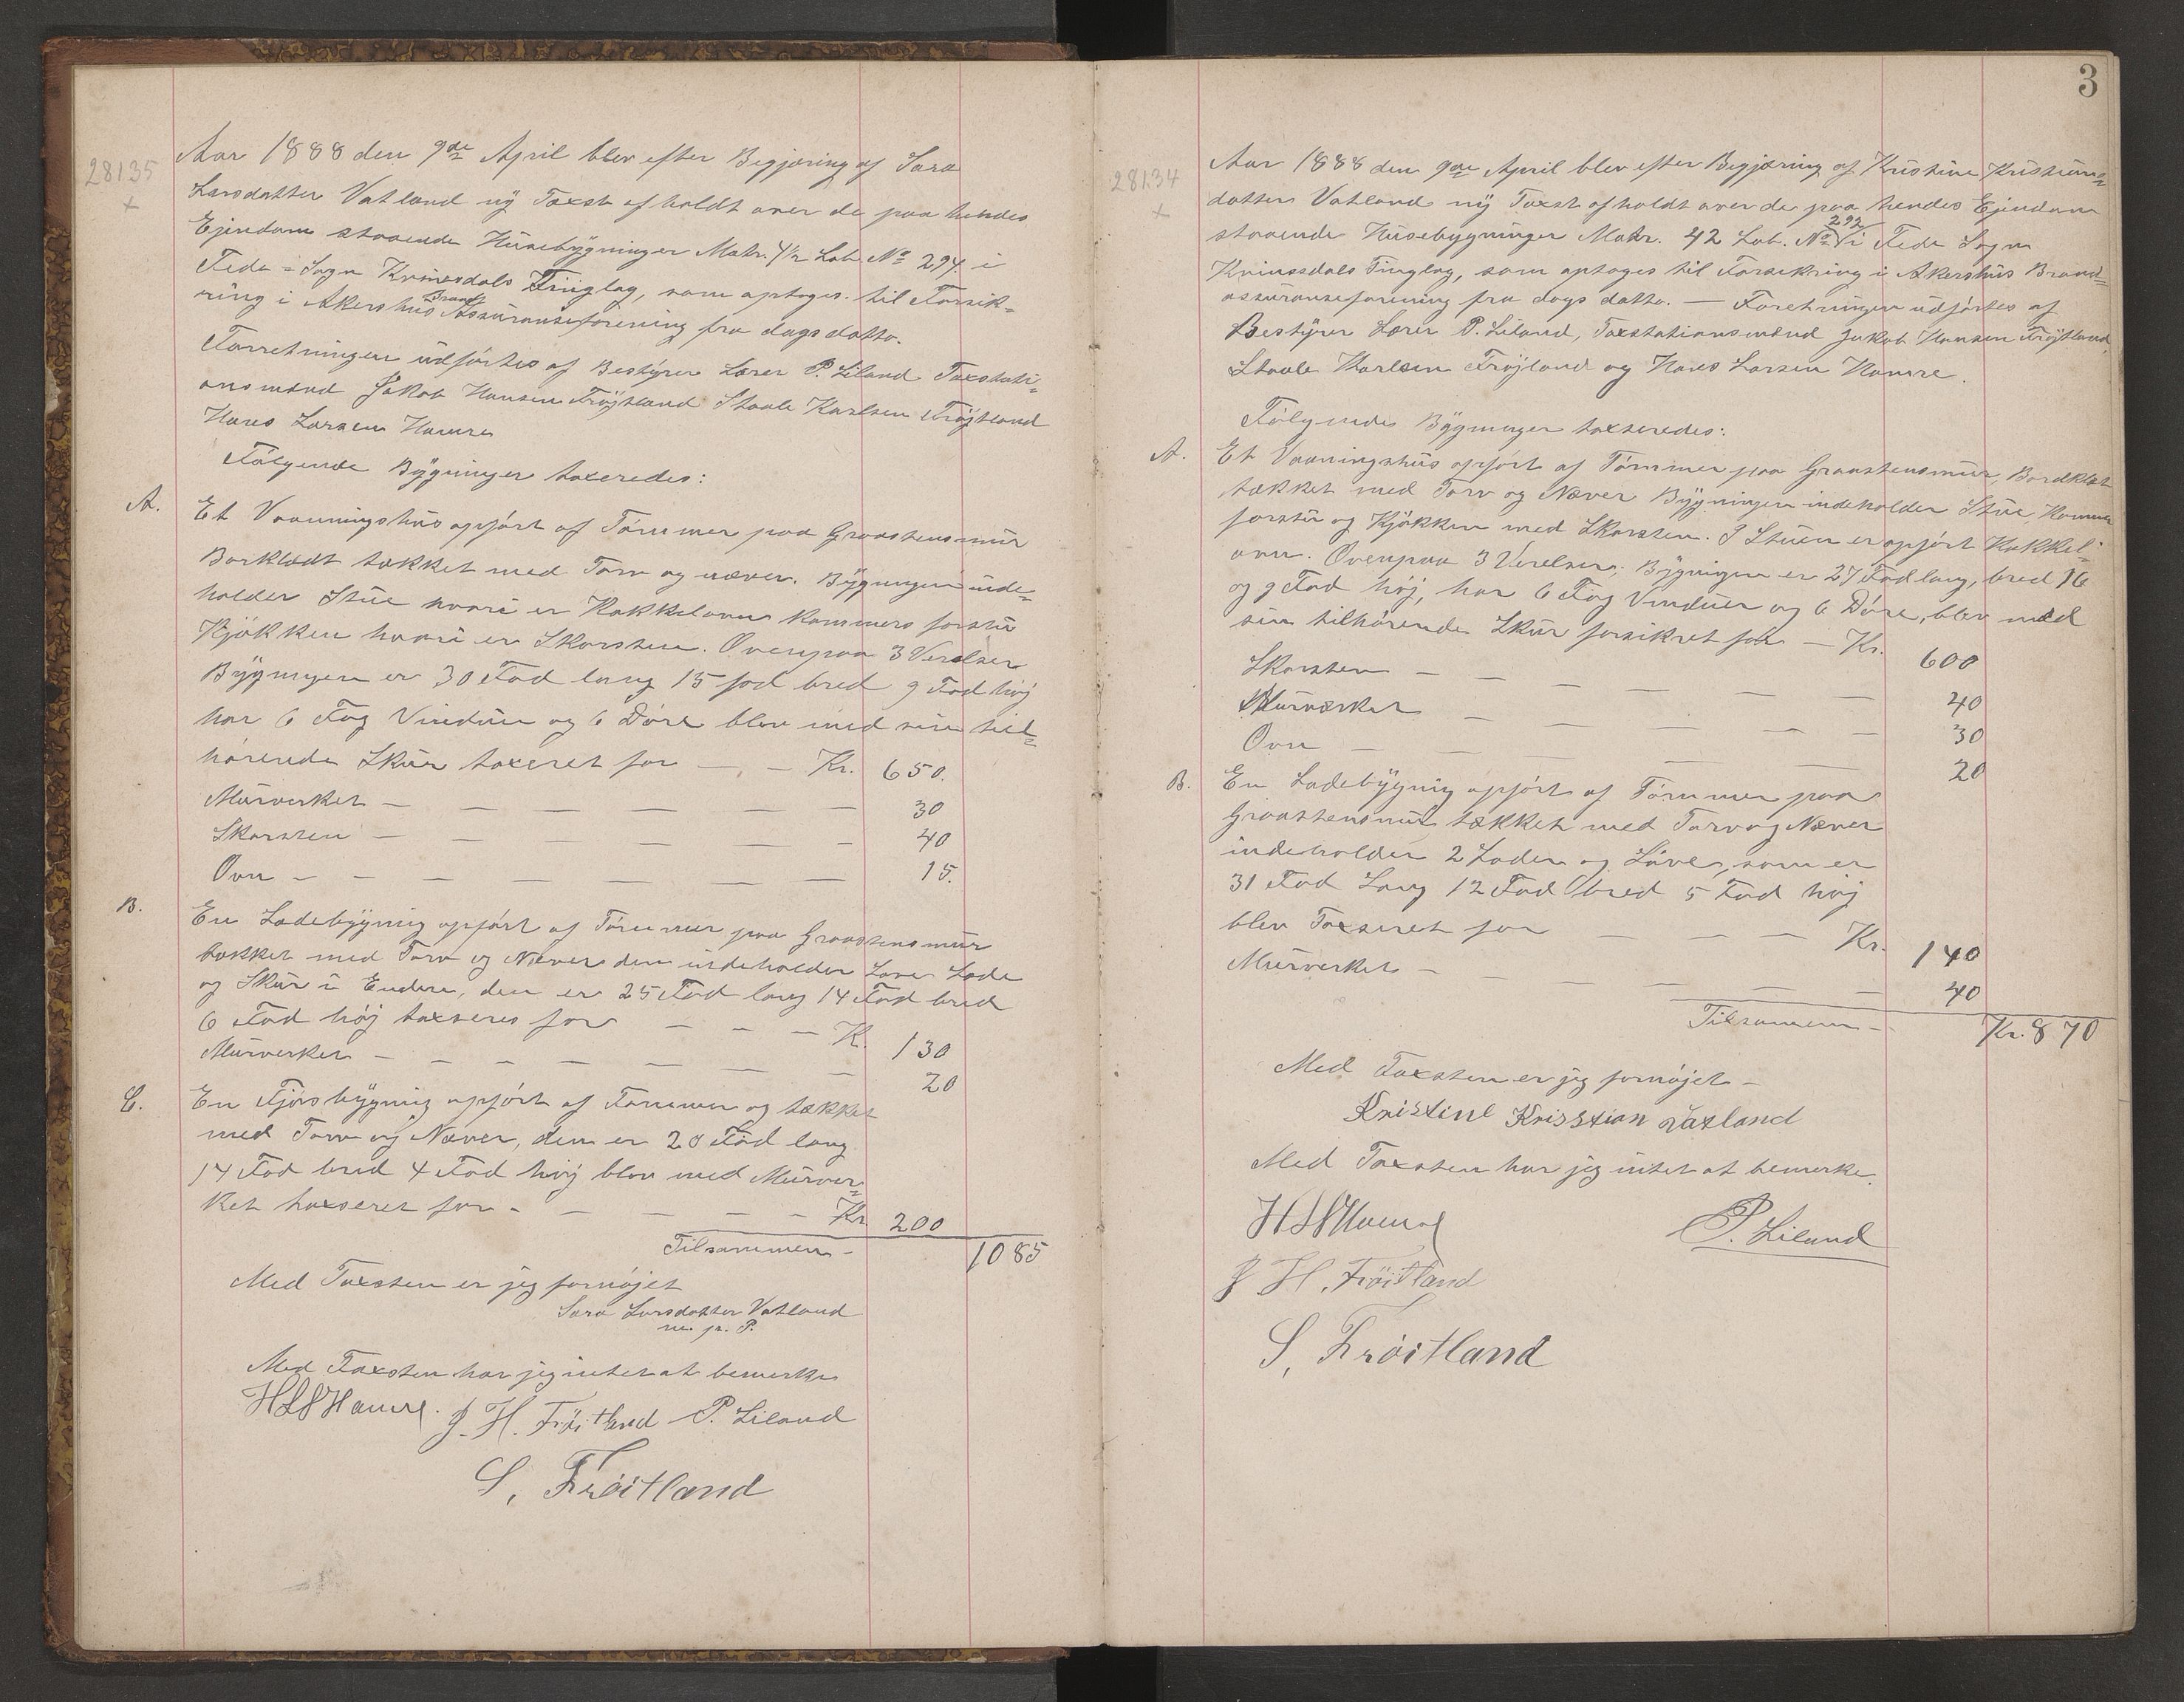 28135
+
Aar 1888 den 9de April blev efter Begjæring af Sara
Larsdatter Vatland ny Taxst afholdt over de paa hendes
Ejendom staaende Husebygninger Matr. 42 Løb. No 294. i
Feda-Sogn Kvinesdals Tinglag, som optoges til Forsik-
ring i Akershus Brand Assuranseforening fra dags datto.
Forretningen udførtes af Bestyrer Lærer P. Liland Taxstati-
onsmænd Jakob Hansen Frøjtland Staale Karlsen Frøjtland
Hans Larsen Hamre
Følgende Bygninger taxeredes:
A. Et Vaaningshus opført af Tømmer paa Graastensmur
Borklædt tækket med Torv og næver. Bygningen inde-
holder Stue hvori er Kakkelovn Kammers forstu
Kjøkken hvori er Skorsten. Ovenpaa 3 Verelser
Bygningen er 30 Fod lang 15 fod bred 9 Fod høj
har 6 Fag Vinduer og 6 Døre blev med sin til-
hørende Skur taxeret for — — Kr. 650.
Murverket — — — — — — 30
Skorsten — — — — — — 40
Ovn — — — — — — — 15.
B. En Ladebygnig opført af Tømmer paa Graastensmur
tækket med Torv og Næver den indeholder Løve Lade
og Skur i Enderne, den er 25 Fod lang 14 Fod bred
6 Fod høj taxseres for — — — K. 130
Murverket — — — — — — — 20
C. En Fjøsbygnig opført af Tømmer og tækket
med Torv og Næver, den er 20 Fod lang
14 Fod bred 4 Fod høj blev med Murver-
ket taxseret for - — — — — Kr 200
Tilsammen - 1085
Med Taxsten er jeg fornøjet
Sara Larsdatter Vatland
m. p. P.
Med Taxsten har jeg intet at bemerke
H L Hamre. J. H. Frøitland P. Liland
S, Frøitland
3
28134
+
Aar 1888 den 9de April blev efter Begjæring af Kristine Kristians-
datter Vatland ny Taxst afholdt over de paa hendes Ejendom
staaende Husebygninger Matr. 42 Løb. No 292 i Feda Sogn
Kvinesdals Tinglag, som optoges til Forsekring i Akershus Brand-
assuranseforening fra dags datto. — Foretningen udførtes af
Bestyrer Lærer P. Liland, Taxstationsmænd Jakob Hansen Frøjtland,
Staale Karlsen Frøjland og Hans Larsen Hamre.
Følgende Bygninger taxseredes:
A. Et Vaaningshus opført af Tømmer paa Graastensmur, Bordklæt
tækket med Torv og Næver Bygningen indeholder Stue, Kammer
forstu og Kjøkken med Skorsten. I Stuen er opført Kakkel-
ovn. Ovenpaa 3 Verelser; Bygnigen er 27 Fod lang, bred 16
og 9 Fod høj, har 6 Fag Vinduer og 6 Døre, blev med
sin tilhørende Skur forsikret for — Kr. 600
Skorsten — — — — — — — 40
Murværket — — — — — — 30
Ovn — — — — — — — 20
B. En Ladebygnig opført af Tømmer paa
Graastensmur tækket med Torv og Næver
indeholder 2 Lader og Løve, som er
31 Fod Lang 12 Fod bred 5 Fod høj
blev Taxseret for — — — Kr. 140
Murverket — — — — — — 40
Tilsammen - Kr. 870
Med Taxsten er jeg fornøjet -
Kristine Krisstian Vatland
Med Taxsten har jeg intet at bemerke.
H L Hamre P. Liland
J H. Frøitland
S, Frøitland